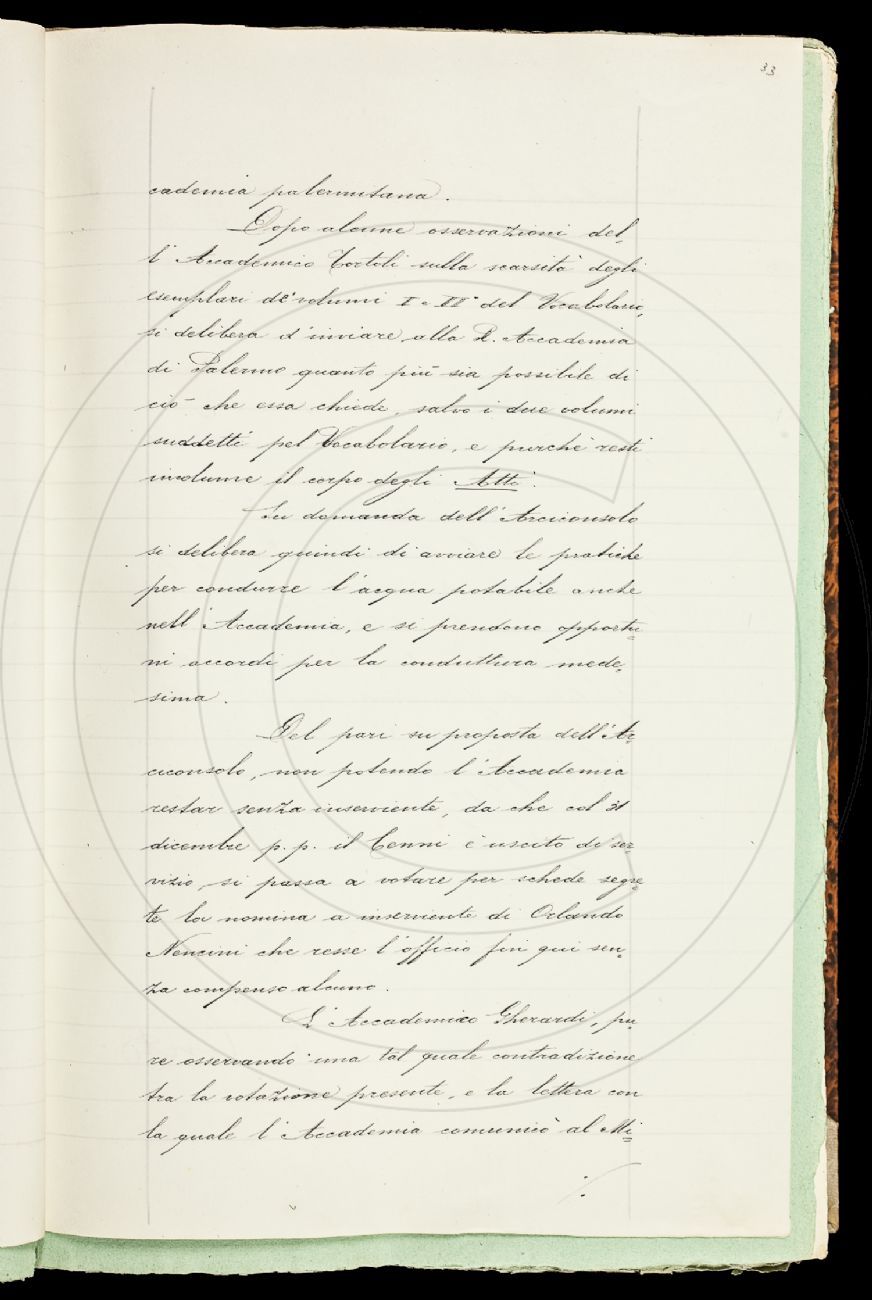 33
cademia palermitana.
Dopo alcune osservazioni del-
l'Accademico Tortoli sulla scarsità degli
esemplari de' volumi I e II del Vocabolario,
si delibera d'inviare alla R. Accademia
di Palermo quanto più sia possibile di
ciò che essa chiede, salvo i due volumi
suddetti pel Vocabolario, e purchè resti
involume il corpo degli Atti.
Su domanda dell'Arciconsolo
si delibera quindi di avviare le pratiche
per condurre l'acqua potabile anche
nell'Accademia, e si prendono opportu=
ni accordi per la conduttura mede=
sima.
Del pari su proposta dell'Ar=
ciconsolo, non potendo l'Accademia
restar senza inserviente, da che col 31
dicembre p. p. il Cenni è uscito di ser=
vizio, si passa a votare per schede segre=
te la nomina a inserviente di Orlando
Nencini che resse l'officio fin qui sen=
za compenso alcuno.
L'Accademico Gherardi, pu=
re osservando una tal quale contradizione
tra la votazione presente, e la lettera con
la quale l'Accademia comunicò al Mi=
./.